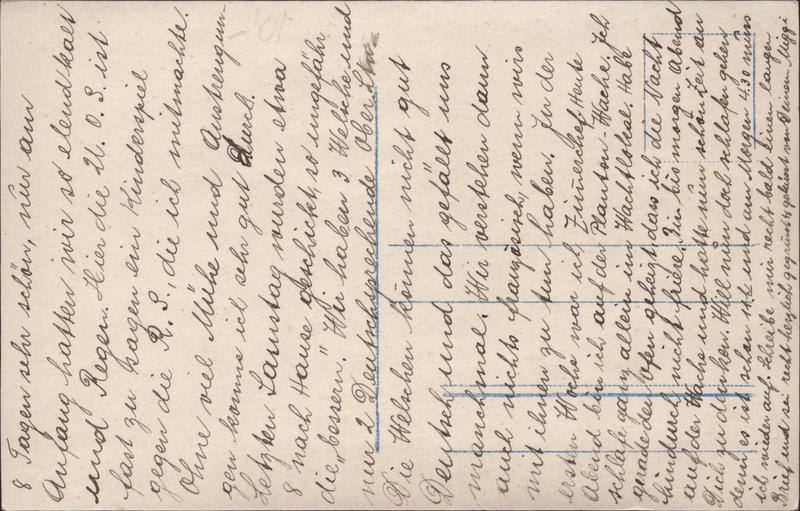 8 Tagen sehr schön, nur am
Anfang hatten wir so elend kalt
und Regen. Hier die U.O.S. ist
fast zu sagen ein Kinderspiel
gegen die R.S., die ich mitmachte.
Ohne viel Mühe und Anstrengun-
gen komme ich sehr gut durch.
Letzten Samstag wurden etwa
8 nach Hause geschickt, so ungefähr
die "bessern". Wir haben 3 Welsche und
nur 2 Deutschsprechende Ober
Die Welschen können nicht gut
Deutsch und das gefällt uns
manchmal. Wir verstehen dann
auch nichts französisch, wenn wirs
mit ihnen zu tun haben. In der
ersten Woche war ich Zimmerchef. Heute
Abend bin ich auf der Planton-Wache. Ich
schlafe ganz allein im Wachtlokal. Habe
gerade den Ofen geheizt, dass ich die Nacht
hindurch nicht friere. Bin bis morgen Abend
auf der Wache und hatte nun schön Zeit an
Dich zu denken. Will nun doch schlafen gehen
denn es ist schon spät und am Morgen 4.30 muss
ich wieder auf. Schreibe mir recht bald einen langen
Brief und sei recht herzlich gegrüsst & geküsst von Deinem Muggi